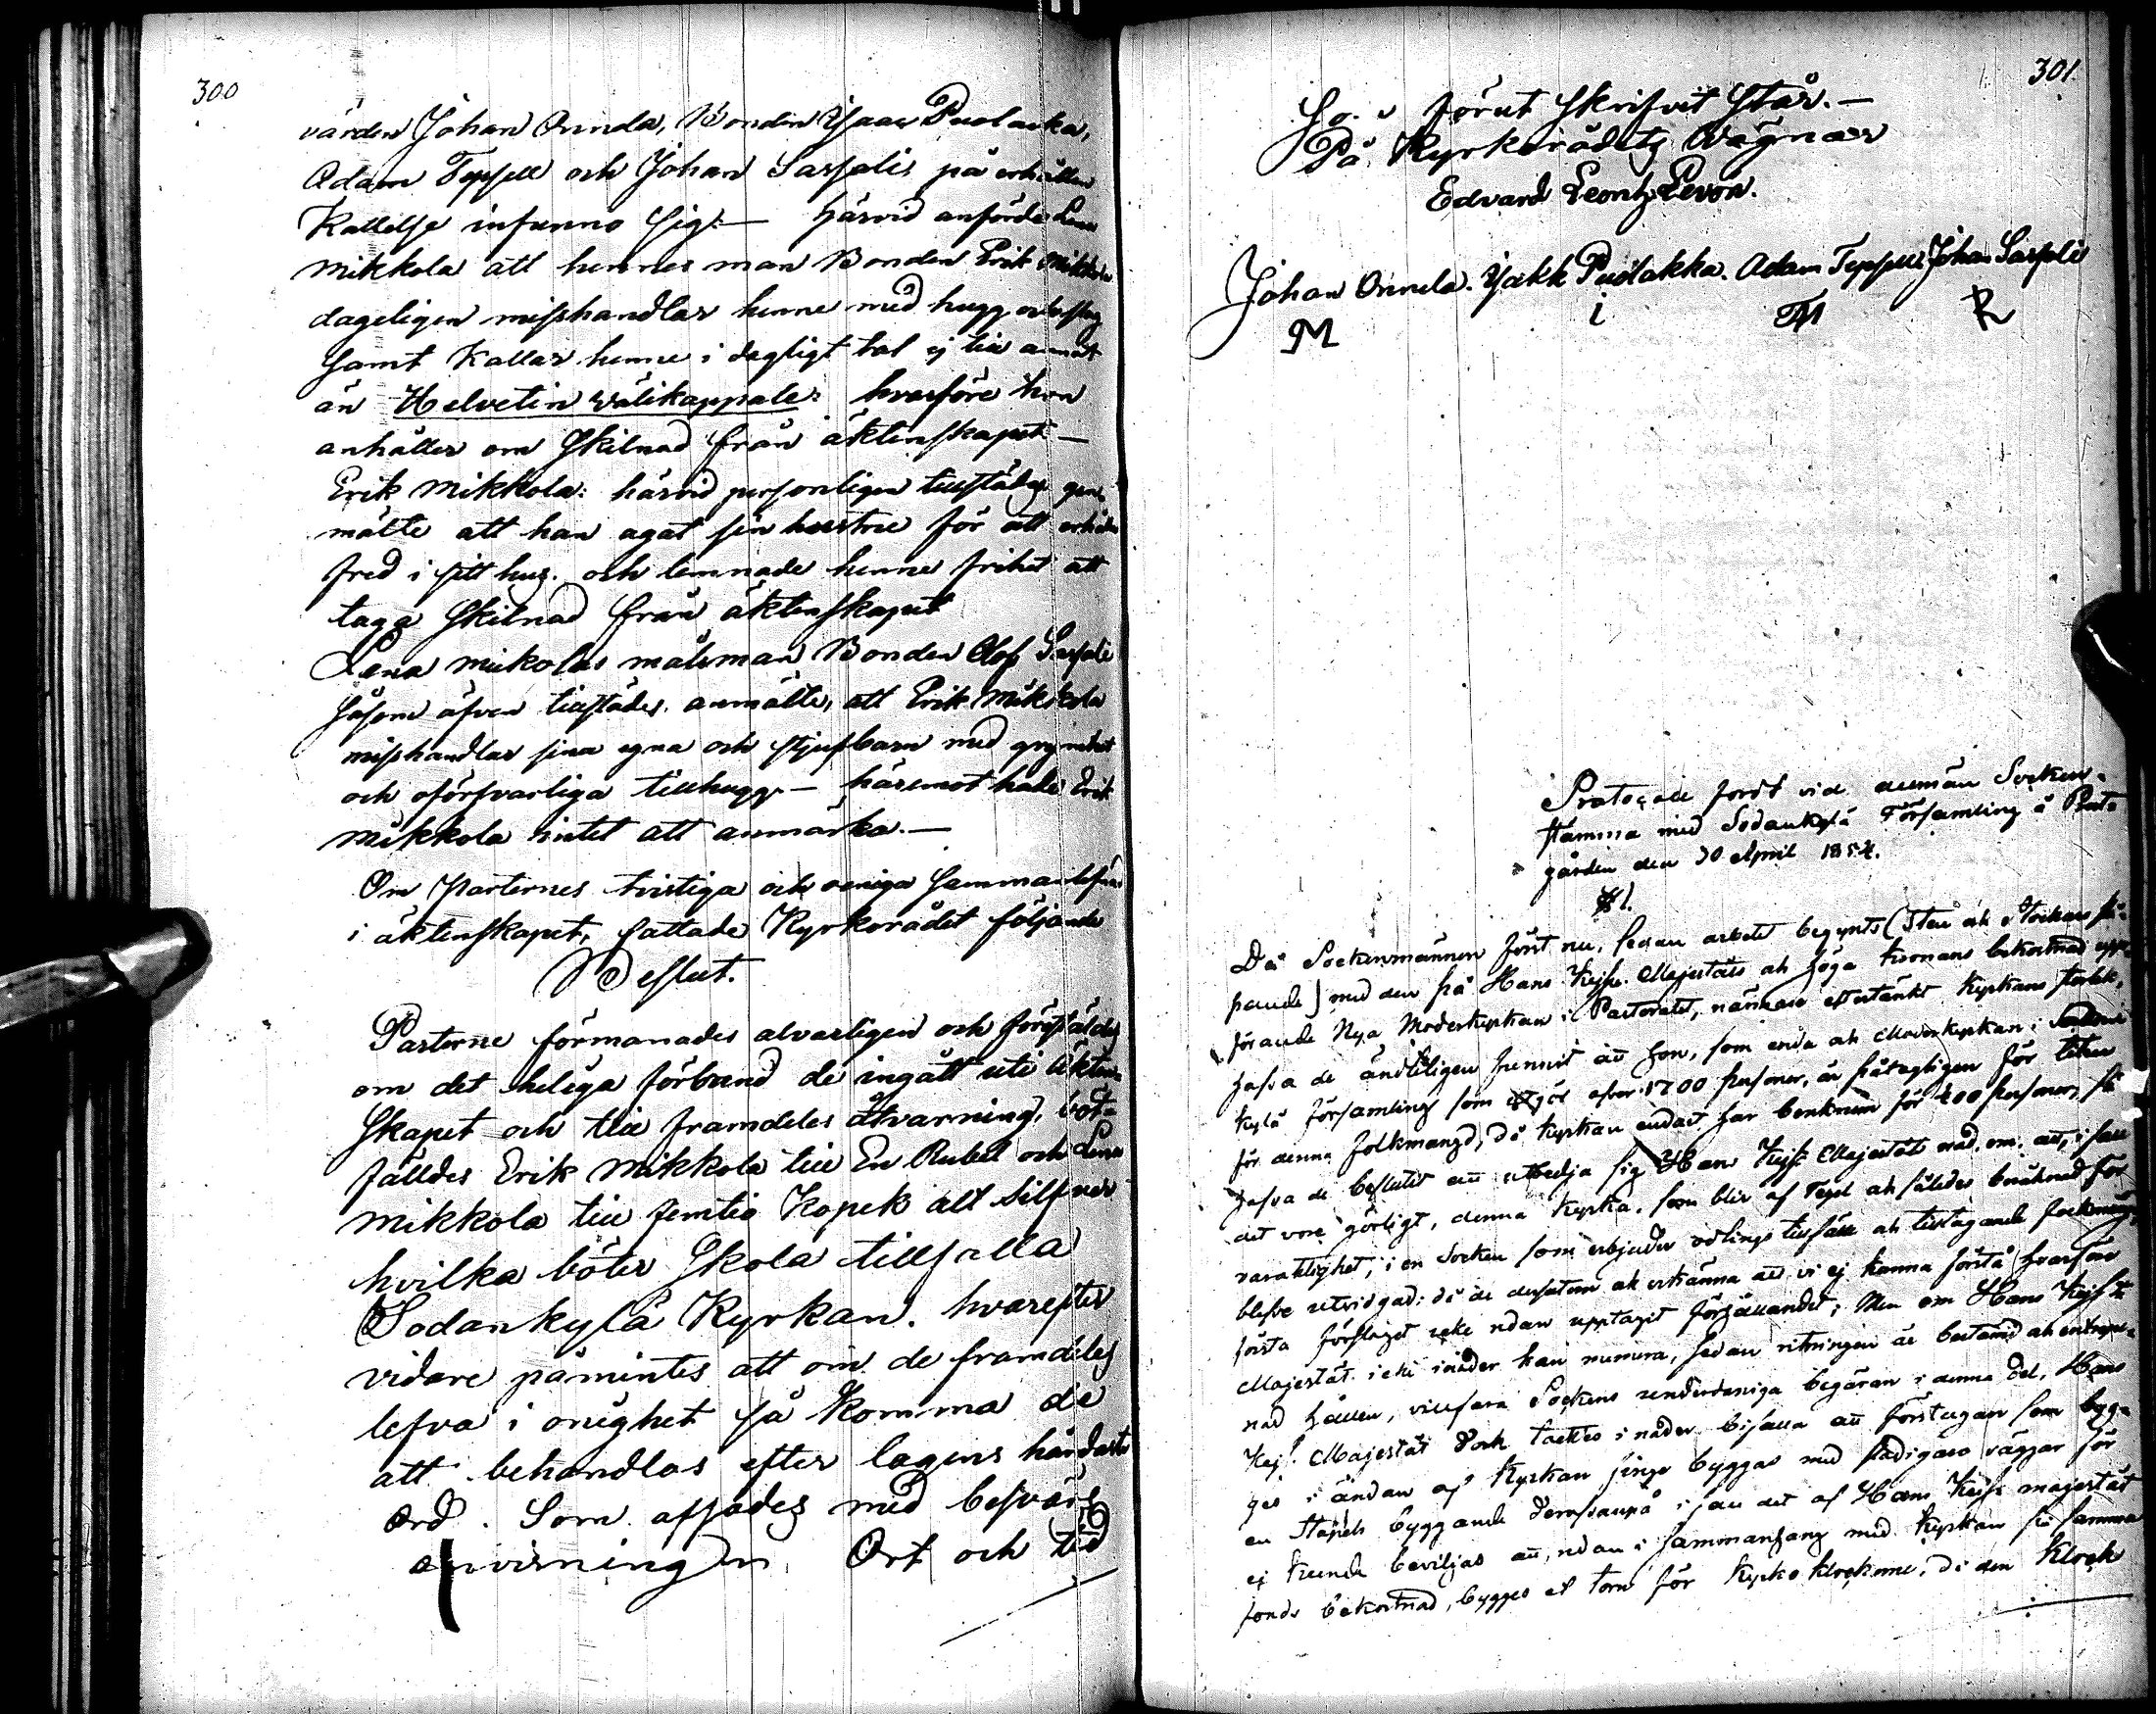 300
värden Johan Onnela, Bonden Isaac Puolacka,
Adam Teppell och Johan Sarfalis på erhållen
Kallelse infunno sig. — härvid anförde Lena
Mikkola att hennes man Bonden Erik Mikkola
dageligen misshandlar henne med hugg och slag
samt Kallar henne i dagligt tal ej till annat
än Helvetin välikappale: hvarföre hon
anhåller om Skilnad från äktenskapet —
Erik Mikkola: härvid personligen tillstädes gen-
mälte att han agat sin hustru för att erhålla
fred i sitt hus. och lemnade henne frihet att
taga Skilnad från äktenskapet
Lena Mikolas målsman Bonden Olof Sarfali
såsom äfven tillstädes. anmälte, att Erik Mikkola
misshandlar sina egna och stjufbarn med grymhet
och oförsvarliga tillhugg — häremot hade Erik
Mikkola intet att anmärka. —
Om Parternes tvistiga och oeniga Sammanlefnad
i äktenskapet, fattade Kyrkorådet följande
Beslut.
Parterne förmanades alvarligen och föreställdes
om det heliga förbund de ingått uti äkten-
skapet och till framdeles åtvarning, böt-
fälldes Erik Mikkola till En Rubel och Lena
Mikkola till femtio Kopek alt Silfver
hvilka böter Skola tillfalla
Sodankylä Kyrkan. hvarefter
vidare påmintes att om de framdeles
lefva i onighet så komma de
att behandlas efter lagens hårdaste
ord. Som afsades med besvärs
anvisning Ort och tid
301.
So. förut skrifvit står. —
På Kyrkorådets Vägnar
Edvard Leontz Levon.
Johan Onnela. Isakk Puolakka. Adam Teppell Johan Sarfalis
M i M R
Protocoll fördt vid allmän Socken-
stämma med Sodankylä Församling å Prest-
gården den 30 April 1854.
§ 1.
Då Sockenmännen först nu, sedan arbetet begynts (Sten och Stockars
med den på Hans Kejs. Majestäts och höga kronans bekostnad upp-
förande Nya Moderkyrkan i Pastoratet, närmare eftertänkt Kyrkans storlek,
hafva de ändteligen funnit att hon, som enda och Moderkyrkan i Sodan-
kylä församling som utgör öfver 1700 personer, är påtagligen för liten
för denna folkmängd, då kyrkan endast har bänkrum för 400 personer, så
hafva de beslutit att utbedja sig Hans Kejs. Majestäts nåd om att, i fall
det vore görligt, denna kyrka, som blir af Tegel och således beräknad för
varaktighet, i en Socken som erbjuder odlings tillfälle och tilltagande folkmängd,
blefve utvidgad: då de dessutom ock erkänna att vi ej kunna förstå hvarföre
första förslaget icke redan upptagit förhållandet; Men om Hans Kejs.
Majestät icke i nåder kan numera, sedan ritningen är bestämd och entrepre-
nad hållen, villfara Sockens underdåniga begäran i denna del, Hans
Kej. Majestät dock täcktes i nåder bifalla att förstugan som byg-
ges i ändan af Kyrkan finge byggas med stadigare väggar för
en Stapels byggande derofvanpå i fall det af Hans Kejs. majestät
ej kunde beviljas att, redan i sammanhang med kyrkan på samma
fonds bekostnad, bygges et torn för Kyrko klockorne, då den Klock